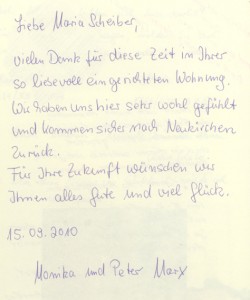 Liebe Maria Scheiber,
vielen Dank für diese Zeit in Ihrer
so liebevoll eingerichteten Wohnung.
Wir haben uns hier sehr wohl gefühlt
und kommen sicher nach Neukirchen
zurück.
Für Ihre Zukunft wünschen wir
Ihnen alles Gute und viel Glück.
15.09.2010
Monika und Peter Marx